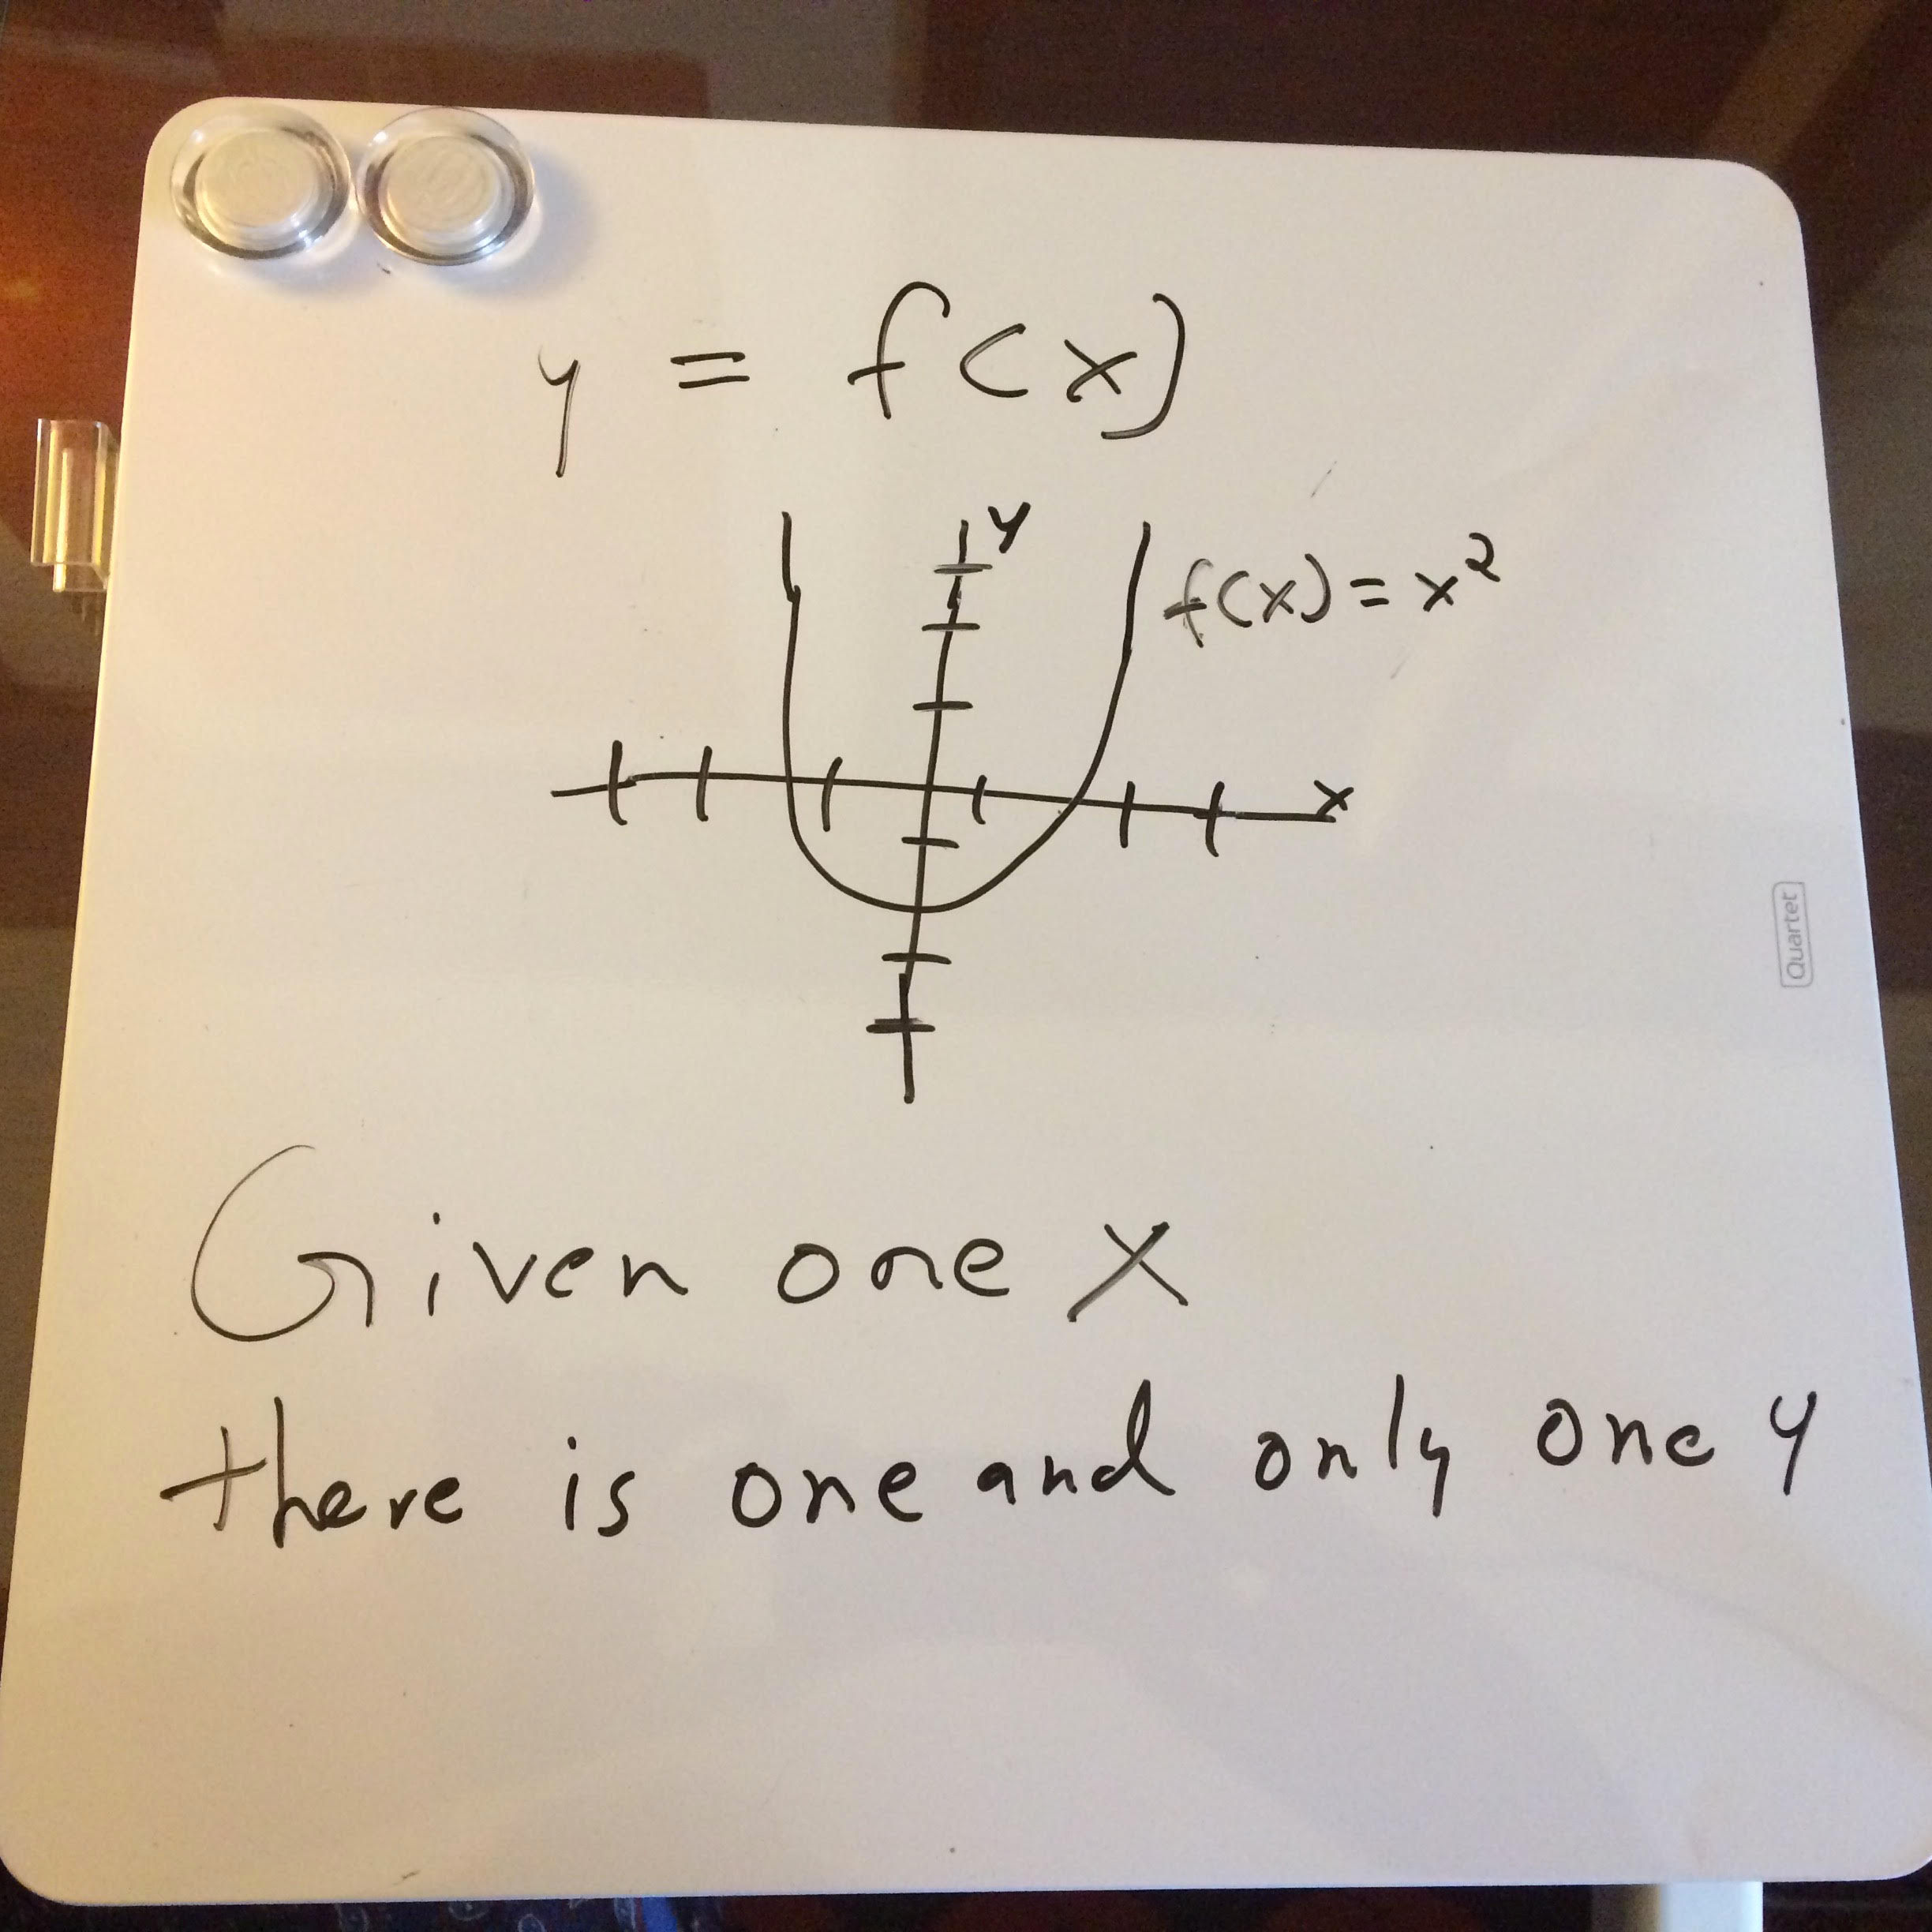 y = f(x)
y
f(x) = x²
x
Quartet
Given one x
there is one and only one y